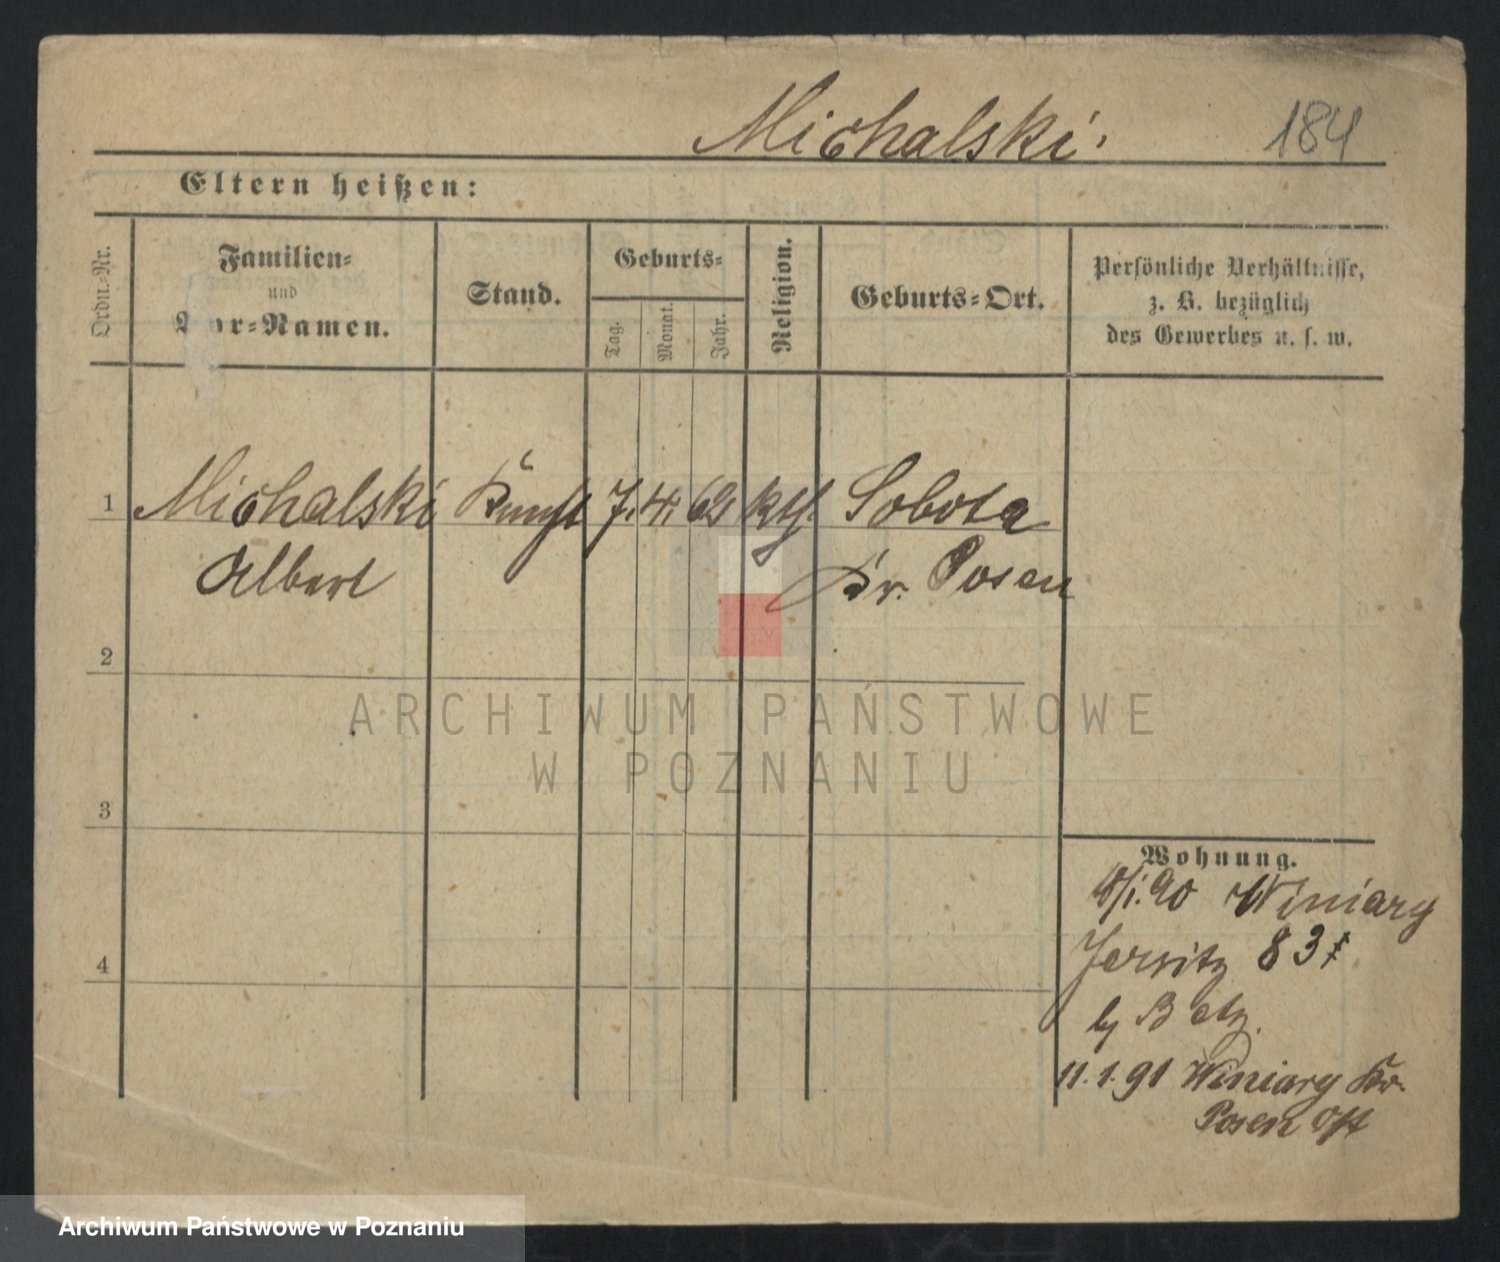 Michalski.
184
Eltern heißen:
Ordn.-Nr.
Familien-
und
Vor-Namen.
Stand.
Geburts-
Tag.
Monat.
Jahr.
Religion.
Geburts-Ort.
Persönliche Verhältnisse,
z. B. bezüglich
des Gewerbes u. s. w.
1
Michalski 7. 4. 62 kth. Sobota
Albert Kr. Posen
2
ARCHIWUM PAŃSTWOWE
W POZNANIU
3
Wohnung.
90 Winiary
Jersitz 83
4
b/ Betz.
11.1.91 Winiary Kr.
Posen Ost
Archiwum Państwowe w Poznaniu